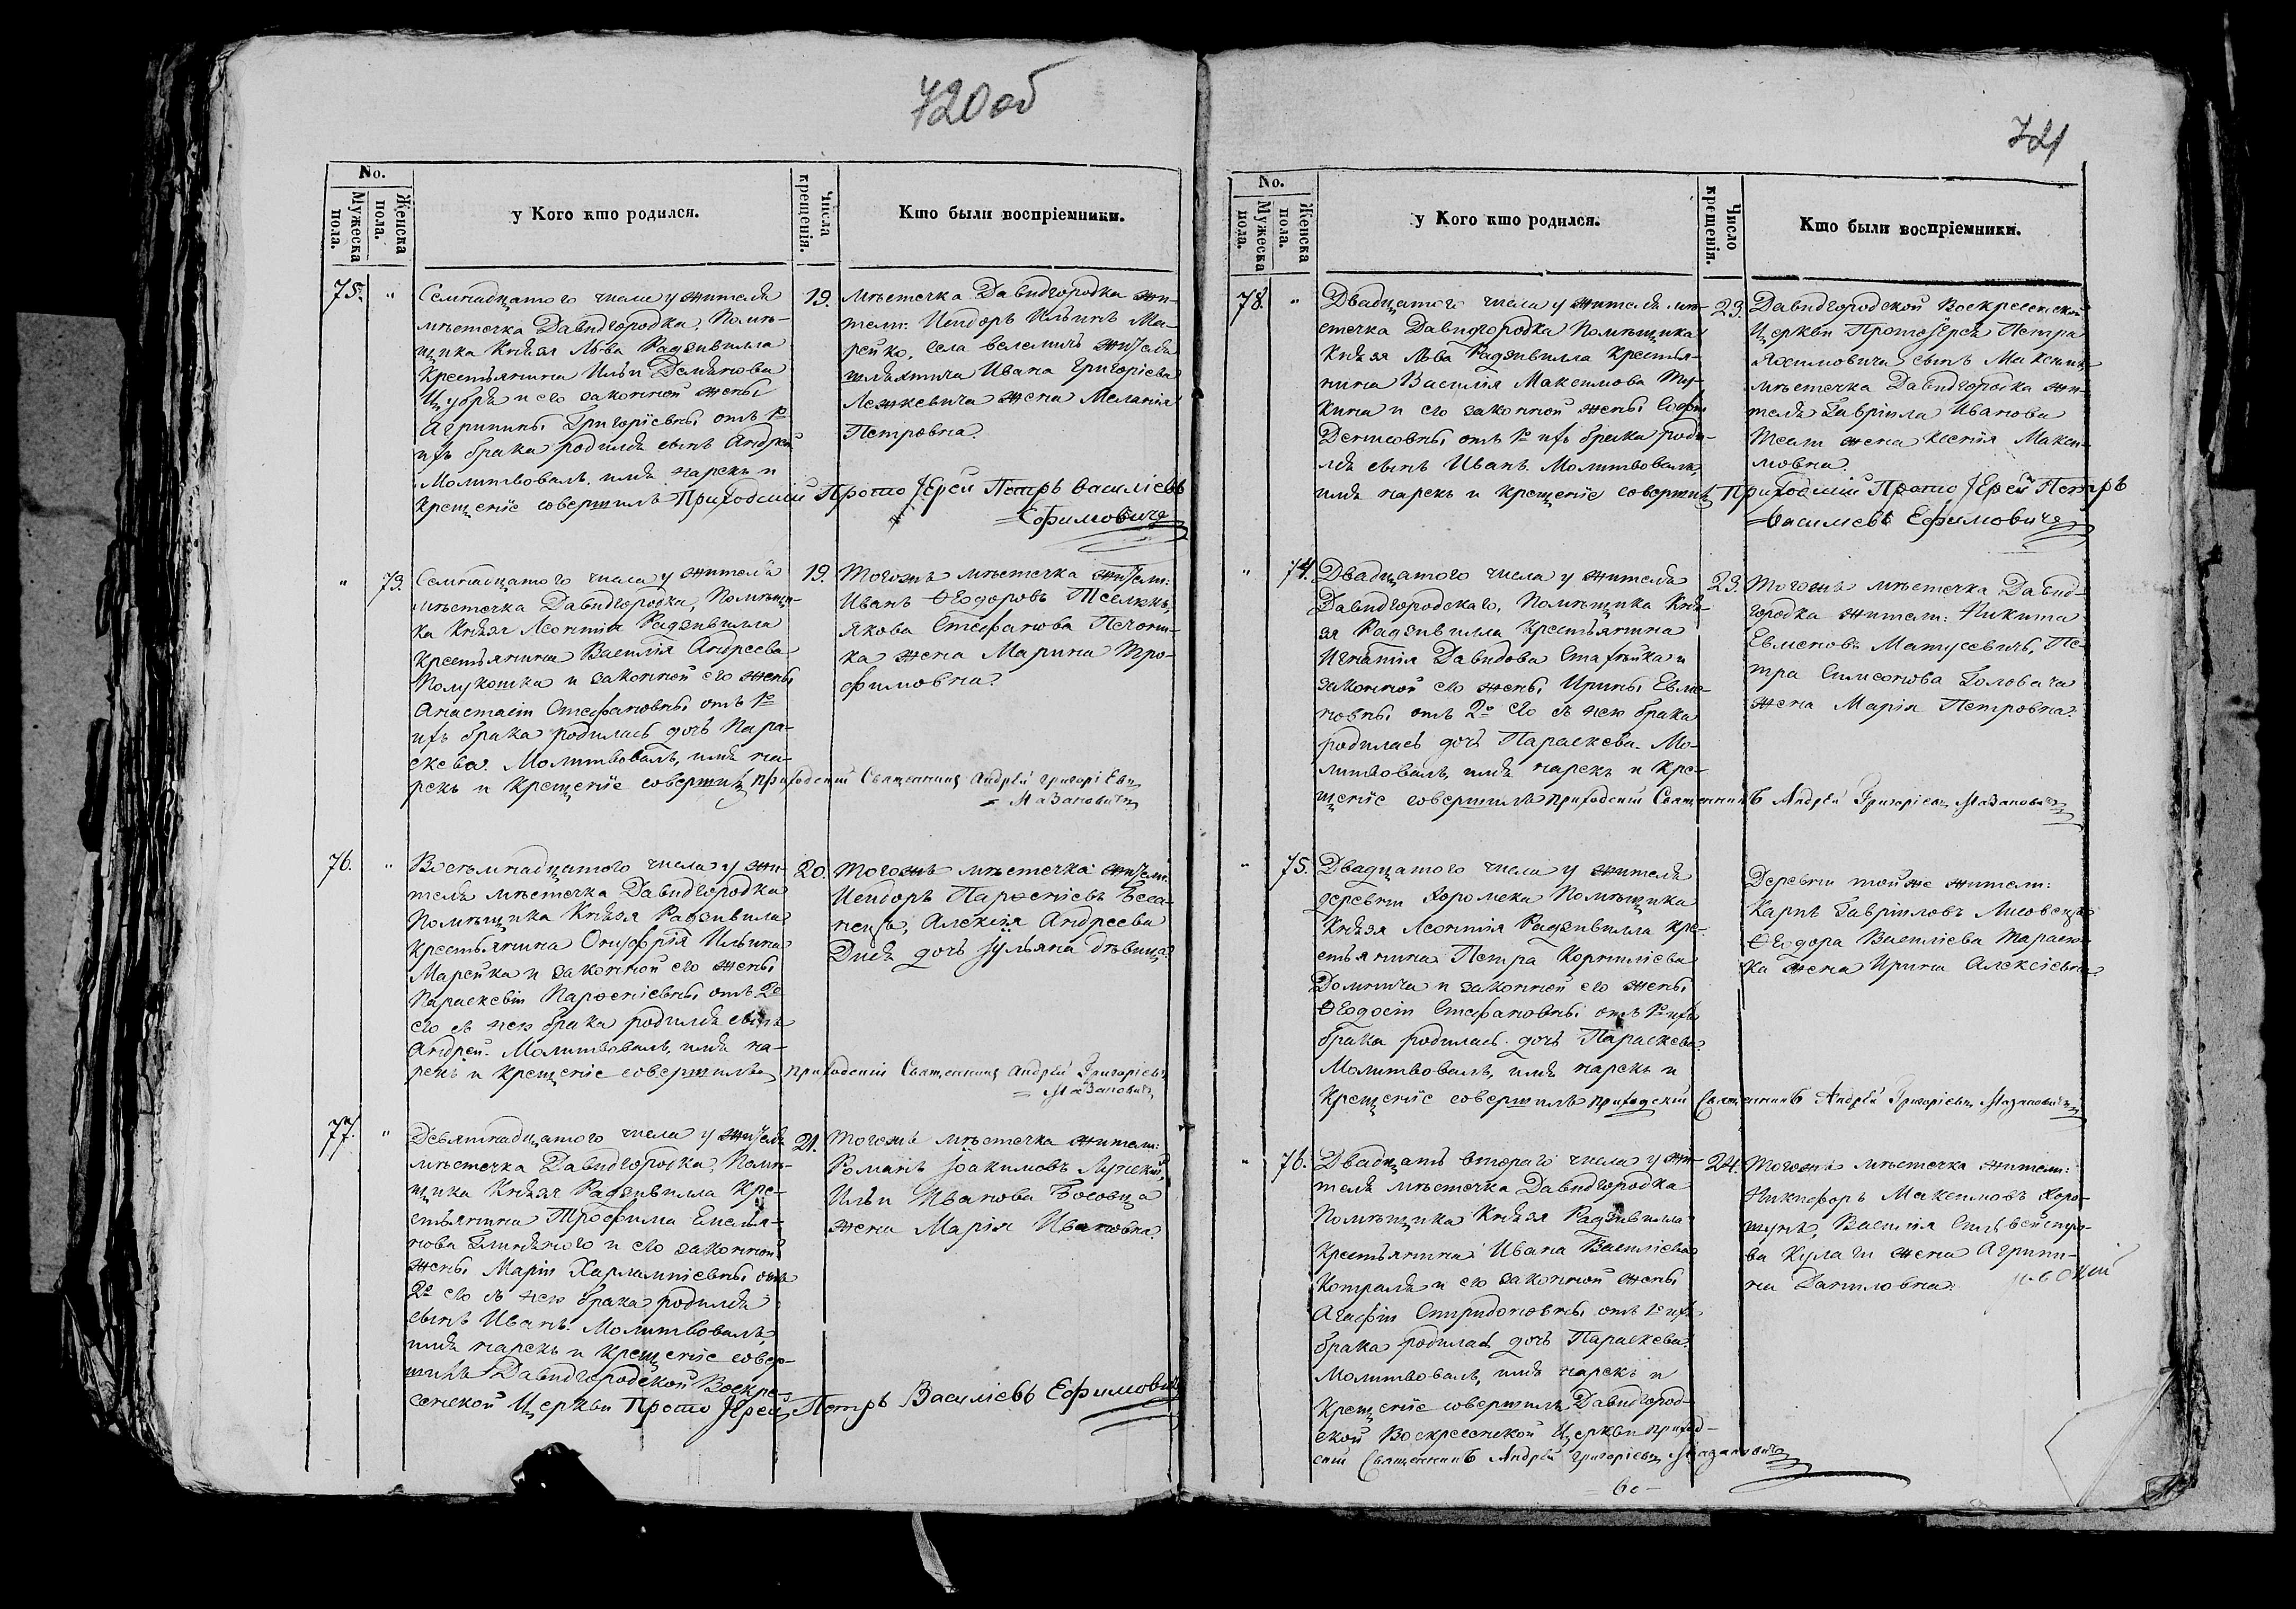 720 об
No.
Мужеска пола.
Женска пола.
у Кого кто родился.
Числа крещенія.
Кто были воспріемники.
75. "
Семнадцатого числа у жителя
мѣстечка Давидгородка, Помѣ-
щика Князя Льва Радзивилла
Крестьянина Ильи Демянова
и его законной жены
Агрипины Григоріевны отъ 1го
ихъ брака родился сынъ Андрей
Молитвовалъ, имя нарекъ и
Крещеніе совершилъ Приходскій Протоіерей Петръ Василіевъ
Ефимовичъ
19.
мѣстечка Давидгородка жи-
тели: Исидоръ Ильинъ Ма-
рейко, села жителя
шляхтича Ивана Григоріева
Лежкевича жена Меланія
Петровна.
" 73.
Семнадцатого числа у жителя
мѣстечка Давидгородка, Помѣщи-
ка Князя Леонтія Радзивилла
Крестьянина Василія Андреева
Полукошка и законной его жены
Анастасіи Стефановны отъ 1го
ихъ брака родилась дочь Пара-
скева. Молитвовалъ, имя на-
рекъ и Крещеніе совершилъ приходскій Священникъ Андрей Григоріевъ
Мазановичъ
19.
Тогожъ мѣстечка жители:
Иванъ Ѳеодоровъ
Якова Стефанова Печон-
ка жена Марина Тро-
фимовна.
76. "
Восемнадцатого числа у жи-
теля мѣстечка Давидгородка
Помѣщика Князя Радзивила
Крестьянина Онуфрія Ильина
Марейка и законной его жены
Параскевіи Парѳеніевны отъ 2го
его съ нею брака родился сынъ
Андрей. Молитвовалъ, имя на-
рекъ и Крещеніе совершилъ приходскій Священникъ Андрей Григоріевъ
Мазановичъ
20.
Тогожъ мѣстечка жители:
Исидоръ Парѳеніевъ
Алексія Андреева
дочь Іульяна дѣвица.
77. "
Девятнадцатого числа у жителя
мѣстечка Давидгородка, Помѣ-
щика Князя Радзивилла Кре-
стьянина Трофима Емелья-
нова и его законной
жены Маріи Харлампіевны отъ
2го его съ нею брака родился
сынъ Иванъ. Молитвовалъ,
имя нарекъ и крещеніе совер-
шилъ Давидгородской Воскре-
сенской Церкви Протоіерей Петръ Василіевъ Ефимовичъ
21.
Тогожъ мѣстечка жители:
Романъ Іоакимовъ
Ильи Иванова Босовца
жена Марія Ивановна.
721
No.
Мужеска пола.
Женска пола.
у Кого кто родился.
Число крещенія.
Кто были воспріемники.
78. "
Двадцатого числа у жителя мѣ-
стечка Давидгородка Помѣщика
Князя Льва Радзивилла Крестья-
нина Василія Максимова
и его законной жены Софіи
Денисовны отъ 1го ихъ брака роди-
лся сынъ Иванъ. Молитвовалъ,
имя нарекъ и крещеніе совершилъ Приходскій Протоіерей Петръ
Василіевъ Ефимовичъ
23.
Давидгородской Воскресенской
Церкви Протоіерея Петра
Яхимовича сынъ Максимъ
мѣстечка Давидгородка жи-
теля Гавріила Иванова
жена Ксенія Макси-
мовна.
" 74.
Двадцатого числа у жителя
Давидгородского, Помѣщика Кня-
зя Радзивилла Крестьянина
Игнатія Давидова Стахѣйка и
законной его жены Ирины Евме-
новны отъ 2го его съ нею брака
родилась дочь Параскева. Мо-
литвовалъ, имя нарекъ и Кре-
щеніе совершилъ приходскій Священникъ Андрей Григоріевъ Мазановичъ
23.
Тогожъ мѣстечка Давид-
городка жители: Никита
Евменовъ Матусевичъ, Пе-
тра Симеонова Головача
жена Марія Петровна.
" 75.
Двадцатого числа у жителя
деревни Хоромска Помѣщика
Князя Леонтія Радзивилла Кре-
стьянина Петра Корниліева
и законной его жены
Ѳеодосіи Стефановны отъ 1го ихъ
брака родилась дочь Параскева.
Молитвовалъ, имя нарекъ и
Крещеніе совершилъ приходскій Священникъ Андрей Григоріевъ Мазановичъ
Деревни тойже жители:
Карпъ Гавріиловъ Лисовецъ
Ѳеодора Василіева Тарасю-
ка жена Ирина Алексіевна.
" 76.
Двадцать второго числа у жи-
теля мѣстечка Давидгородка
Помѣщика Князя Радзивилла
Крестьянина Ивана Василіева
Котраля и его законной жены
Агафіи Спиридоновны отъ 1го ихъ
брака родилась дочь Параскева.
Молитвовалъ, имя нарекъ и
Крещеніе совершилъ Давидгород-
ской Воскресенской Церкви приход-
скій Священникъ Андрей Григоріевъ Мазановичъ
24.
Тогожъ мѣстечка жители:
Никифоръ Максимовъ Хоро-
шунъ, Василія Сильвестро-
ва Кулаги жена Агрипи-
на Даниловна.